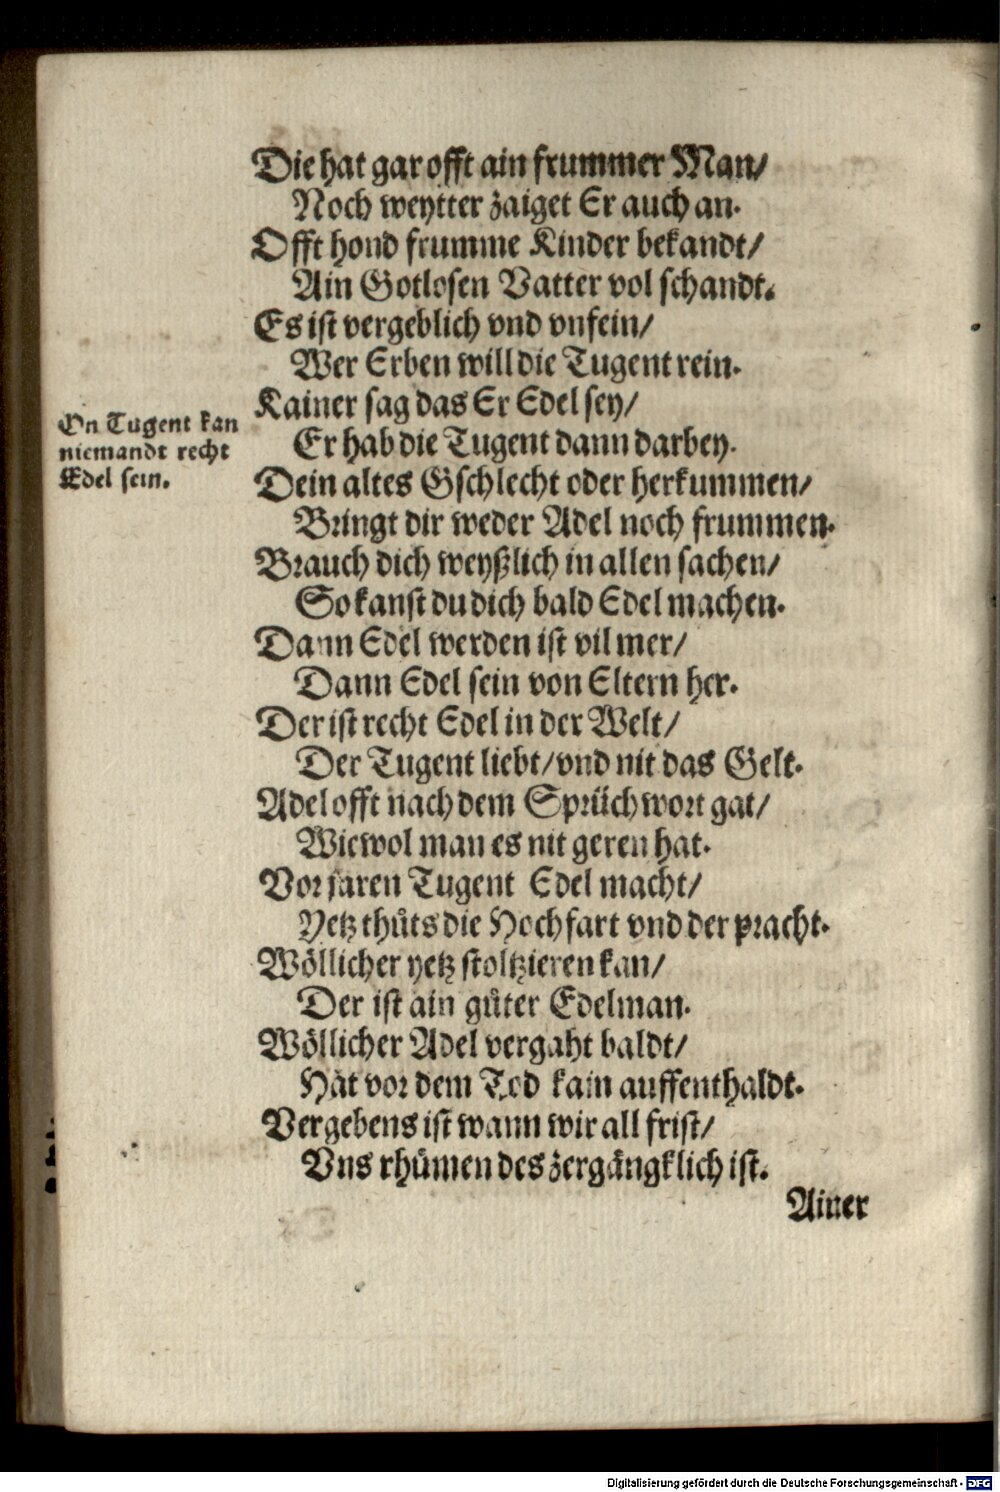 Die hat gar offt ain frummer Man/
Noch weytter zaiget Er auch an.
Offt hond frumme Kinder bekandt/
Ain Gotlosen Vatter vol schandt.
Es ist vergeblich vnd vnfein/
Wer Erben will die Tugent rein.
Kainer sag das Er Edel sey/
Er hab die Tugent dann darbey.
On Tugent kan
niemandt recht
Edel sein.
Dein altes Gschlecht oder herkummen/
Bringt dir weder Adel noch frummen.
Brauch dich weyßlich in allen sachen/
So kanst du dich bald Edel machen.
Dann Edel werden ist vil mer/
Dann Edel sein von Eltern her.
Der ist recht Edel in der Welt/
Der Tugent liebt/vnd nit das Gelt.
Adel offt nach dem Sprüchwort gat/
Wiewol man es nit geren hat.
Vor jaren Tugent Edel macht/
Yetz thůts die Hochfart vnd der pracht.
Wöllicher yetz stoltzieren kan/
Der ist ain gůter Edelman.
Wöllicher Adel vergaht baldt/
Hat vor dem Tod kain auffenthaldt.
Vergebens ist wann wir all frist/
Vns rhümen des zergängklich ist.
Ainer
Digitalisierung gefördert durch die Deutsche Forschungsgemeinschaft - DFG